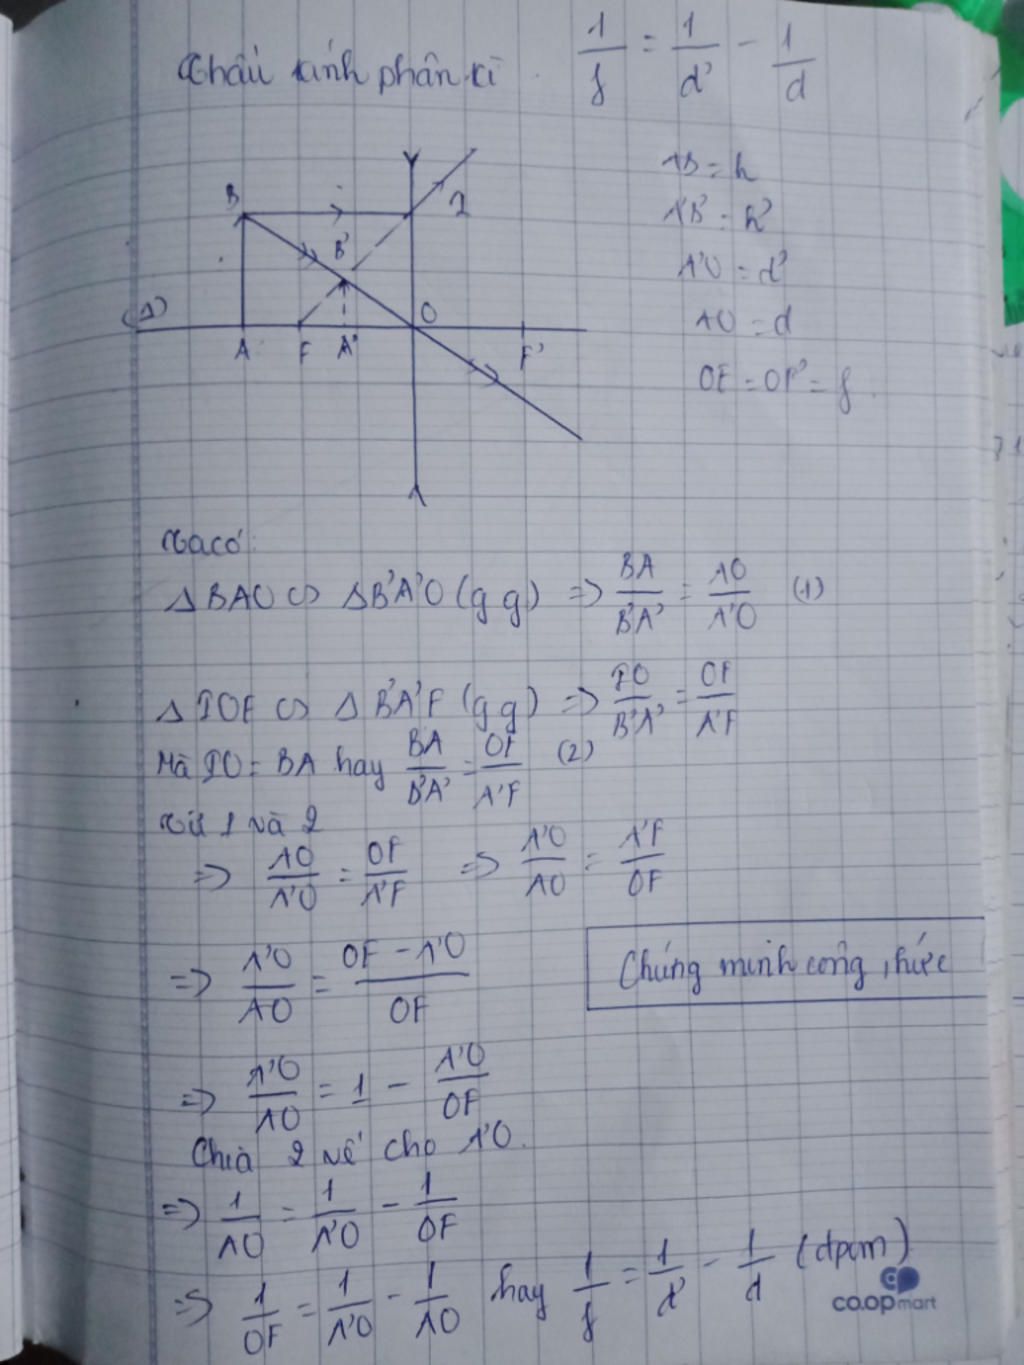 Thấu kính phân kì. 1/f = 1/d' - 1/d
AB = h
A'B' = h'
A'O = d'
AO = d
OF = OF' = f.
B
I
B'
(Δ)
O
A F A' F'
Ta có:
Δ BAO ∽ Δ B'A'O (g g) => BA/B'A' = AO/A'O (1)
Δ IOF ∽ Δ B'A'F (g g) => IO/B'A' = OF/A'F
Mà IO = BA hay BA/B'A' = OF/A'F (2)
Từ 1 và 2
=> AO/A'O = OF/A'F => A'O/AO = A'F/OF
=> A'O/AO = (OF - A'O)/OF
Chứng minh công thức
=> A'O/AO = 1 - A'O/OF
Chia 2 vế cho A'O.
=> 1/AO = 1/A'O - 1/OF
=> 1/OF = 1/A'O - 1/AO hay 1/f = 1/d' - 1/d (đpcm)
co.opmart